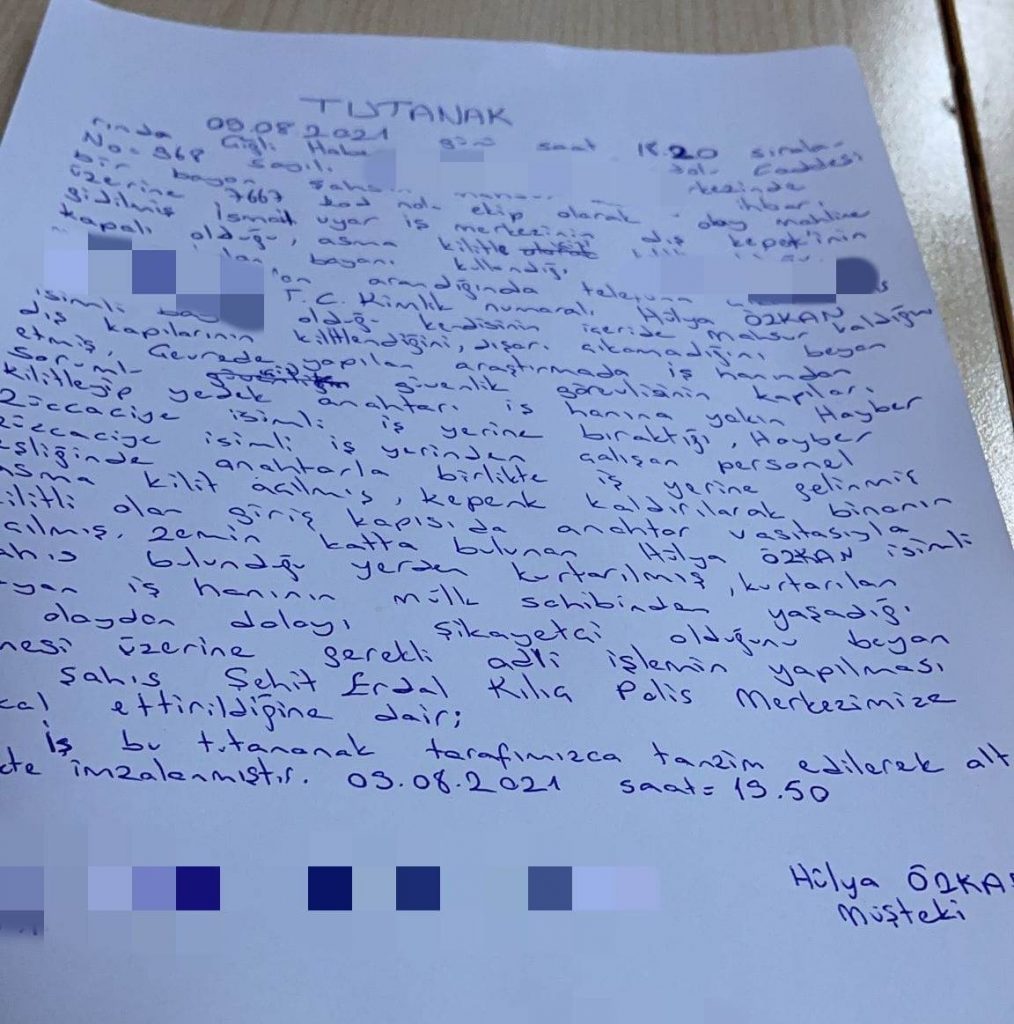 TUTANAK
09.08.2021 günü saat 18.20 sırala-
rında Gizli Habe Caddesi
No= 968 sayıl. rkezinde
bir bayan şahs ihbar.
üzerine 7667 kod nolu ekip olarak olay mahline
gidilmiş İsmail uyar iş merkezinin dış kepek'inin
kapalı olduğu, asma kilitle
bayanı kullandığı
arandığında telefuna
isimli T.C. Kimlik numaralı Hülya ÖZKAN
olduğu kendisinin içeride mahsur kaldığını
dış kapılarının kilitlendiğini, dışarı çıkamadığını beyan
etmiş, Çevrede yapılan araştırmada iş hanından
soruml- güvenlik görevlisinin kapıları
kilitleyip yedek anahtarı iş hanına yakın Hayber
züccaciye isimli iş yerine bıraktığı, Hayber
züccaciye isimli iş yerinden çalışan personel
eşliğinde anahtarla birlikte iş yerine gelinmiş
asma kilit açılmış, kepenk kaldırılarak binanın
ilitli olan giriş kapısıda anahtar vasıtasıyla
çılmış. zemin katta bulunan Hülya ÖZKAN isimli
ahıs bulunduğu yerden kurtarılmış, kurtarılan
yan iş hanının mülk sahibinden yaşadığı
olaydan dolayı şikayetci olduğunu beyan
mesi üzerine gerekli adli işlemin yapılması
şahıs Şehit Erdal Kılıç Polis Merkezimize
kal ettirildiğine dair;
İş bu tutananak tarafımızca tanzim edilerek alt
kte imzalanmıştır. 09.08.2021 saat= 19.50
Hülya ÖZKA
Müşteki